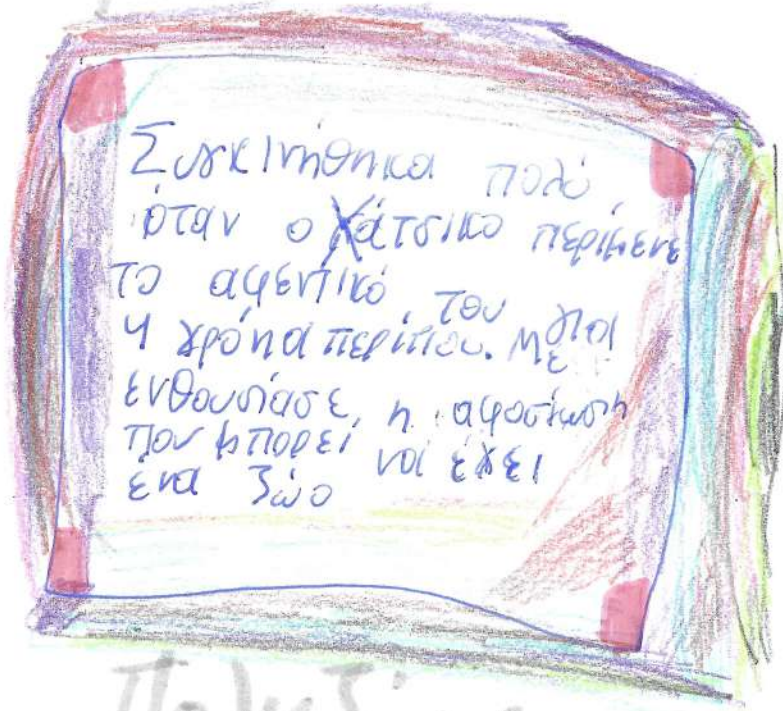 Συγκινήθηκα πολύ
όταν ο Χάτσικο περίμενε
το αφεντικό του για
4 χρόνια περίπου. Με
ενθουσίασε η αφοσίωση
που μπορεί να έχει
ένα ζώο